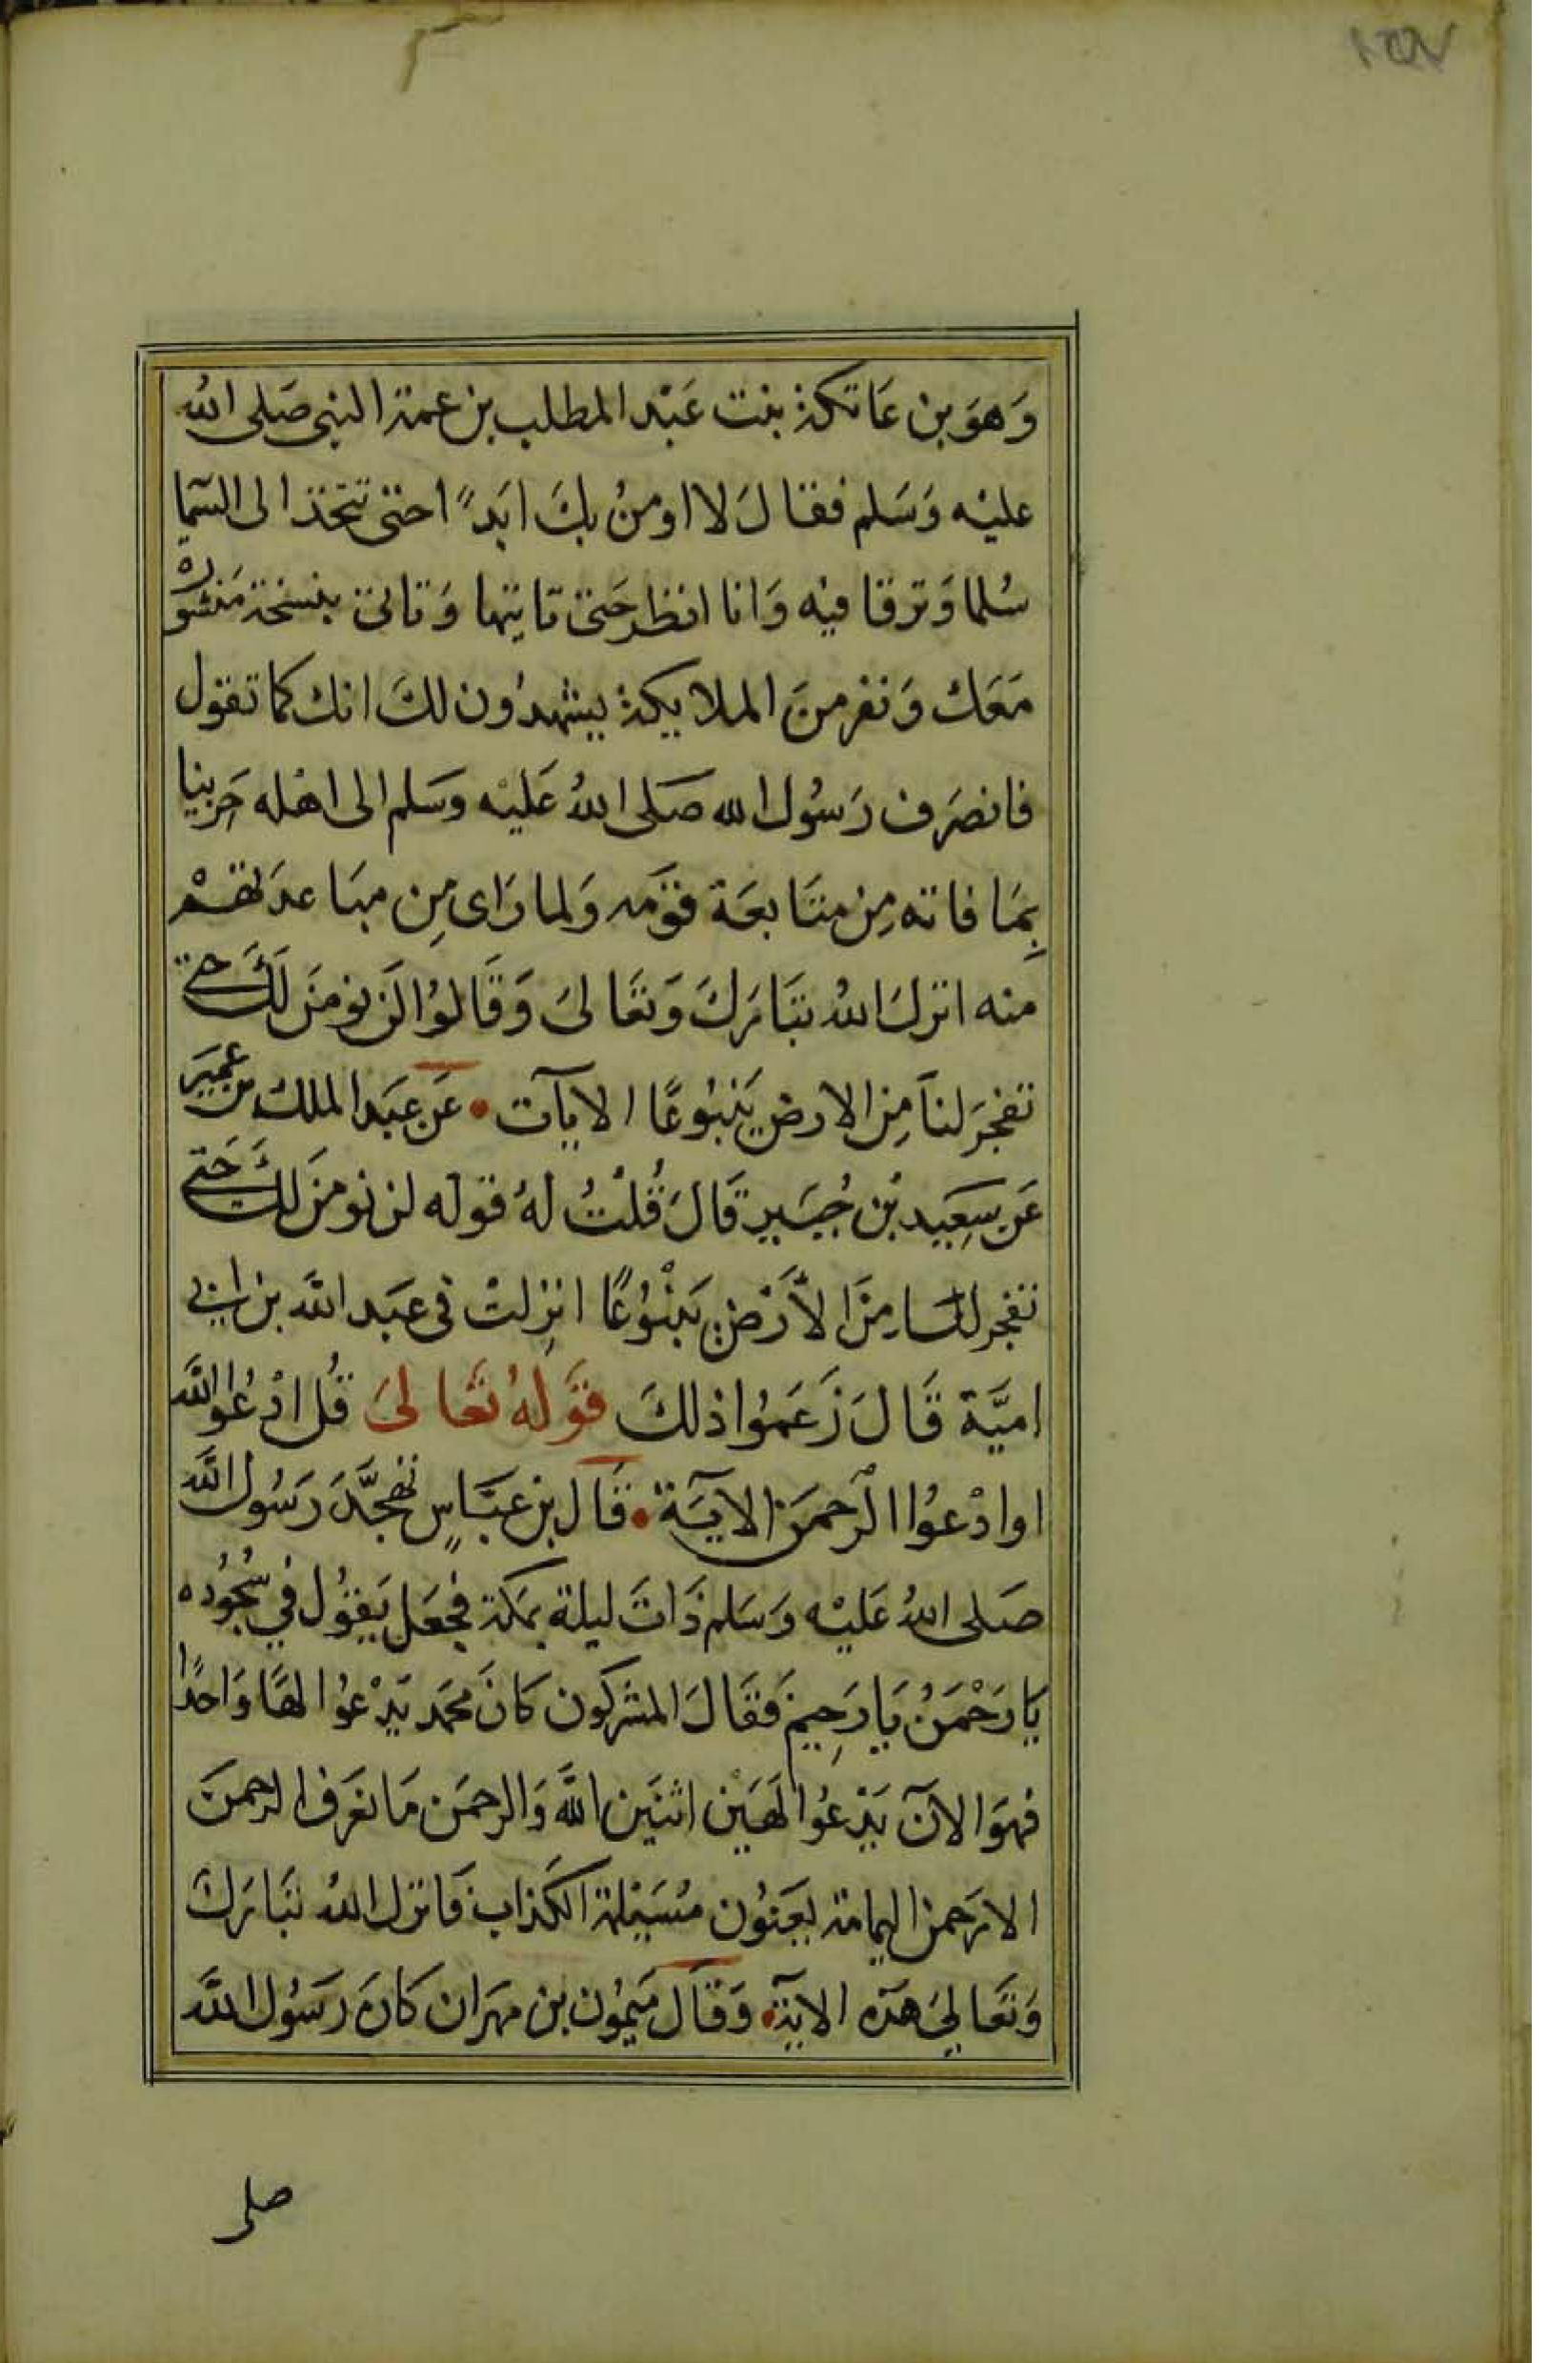 وَهوَ بن عَاتكة بنت عَبْد المطلب بن عمة النبى صَلى الله
عليْه وَسَلم فقالَ لا اومنُ بكَ ابَداً حتى تتخذ الى السّما
سُلما وَترقا فيْه وَانا انظر حَتى تاتيها وَتاتى بنسخة مَنشوره
مَعَك وَنفر منَ الملايكة يشهدُون لكَ انك كما تقول
فانصَرَف رَسُول الله صَلى اللهُ عَليْه وسَلم الى اهْله حَزينا
بِمَا فاته مِن متَابعَة قوْمه وَلما رَاى مِن مبَاعدَتهمْ
منه انزلَ اللهُ تبَارَكَ وَتعَالىَ وَقَالوُا لَن نومنَ لَكَ حَتى
تفجرَ لنَا مِن الارض يَنبُوعًا الايآت • عَن عَبَد الملك بن عميَر
عَن سَعِيد بْن جُبَير قَالَ قُلتُ لهُ قوله لن نومنَ لكَ حَتى
تفجر لنَا مِنَ الأرْض يَنْبُوْعًا انزِلتْ فى عبَد الله بن ابى
اميَّة قَالَ زَعَموُا ذلكَ قوَلهُ تعَالىَ قُل ادْعُوا اللَّه
اوادْعوُا الرَّحمَن الآيَة • قَال بن عبَّاسٍ تهجَّدَ رَسُول اللَّه
صَلى اللهُ عَليْه وَسَلم ذَاتَ ليلة بمكة فجعَل يَقوُل في سُجُوُده
يَا رَحْمَنُ يَا رَحِيمُ فَقَالَ المشركون كانَ محمَد يَدْعوُا الهًا وَاحدًا
فهوَ الآنَ يَدْعُوا الَهَيْن اثنَيَن اللَّه وَالرحمَن مَا نعَرَف الرحمنَ
الا رَحمن اليمامة يعَنوُن مُسَيْلمة الكَذاب فَانزل اللهُ تبَارَكَ
وَتعَالىَ هَذه الاية • وَقَال مَيموُن بن مهرَان كانَ رَسُول اللَّه
صلى